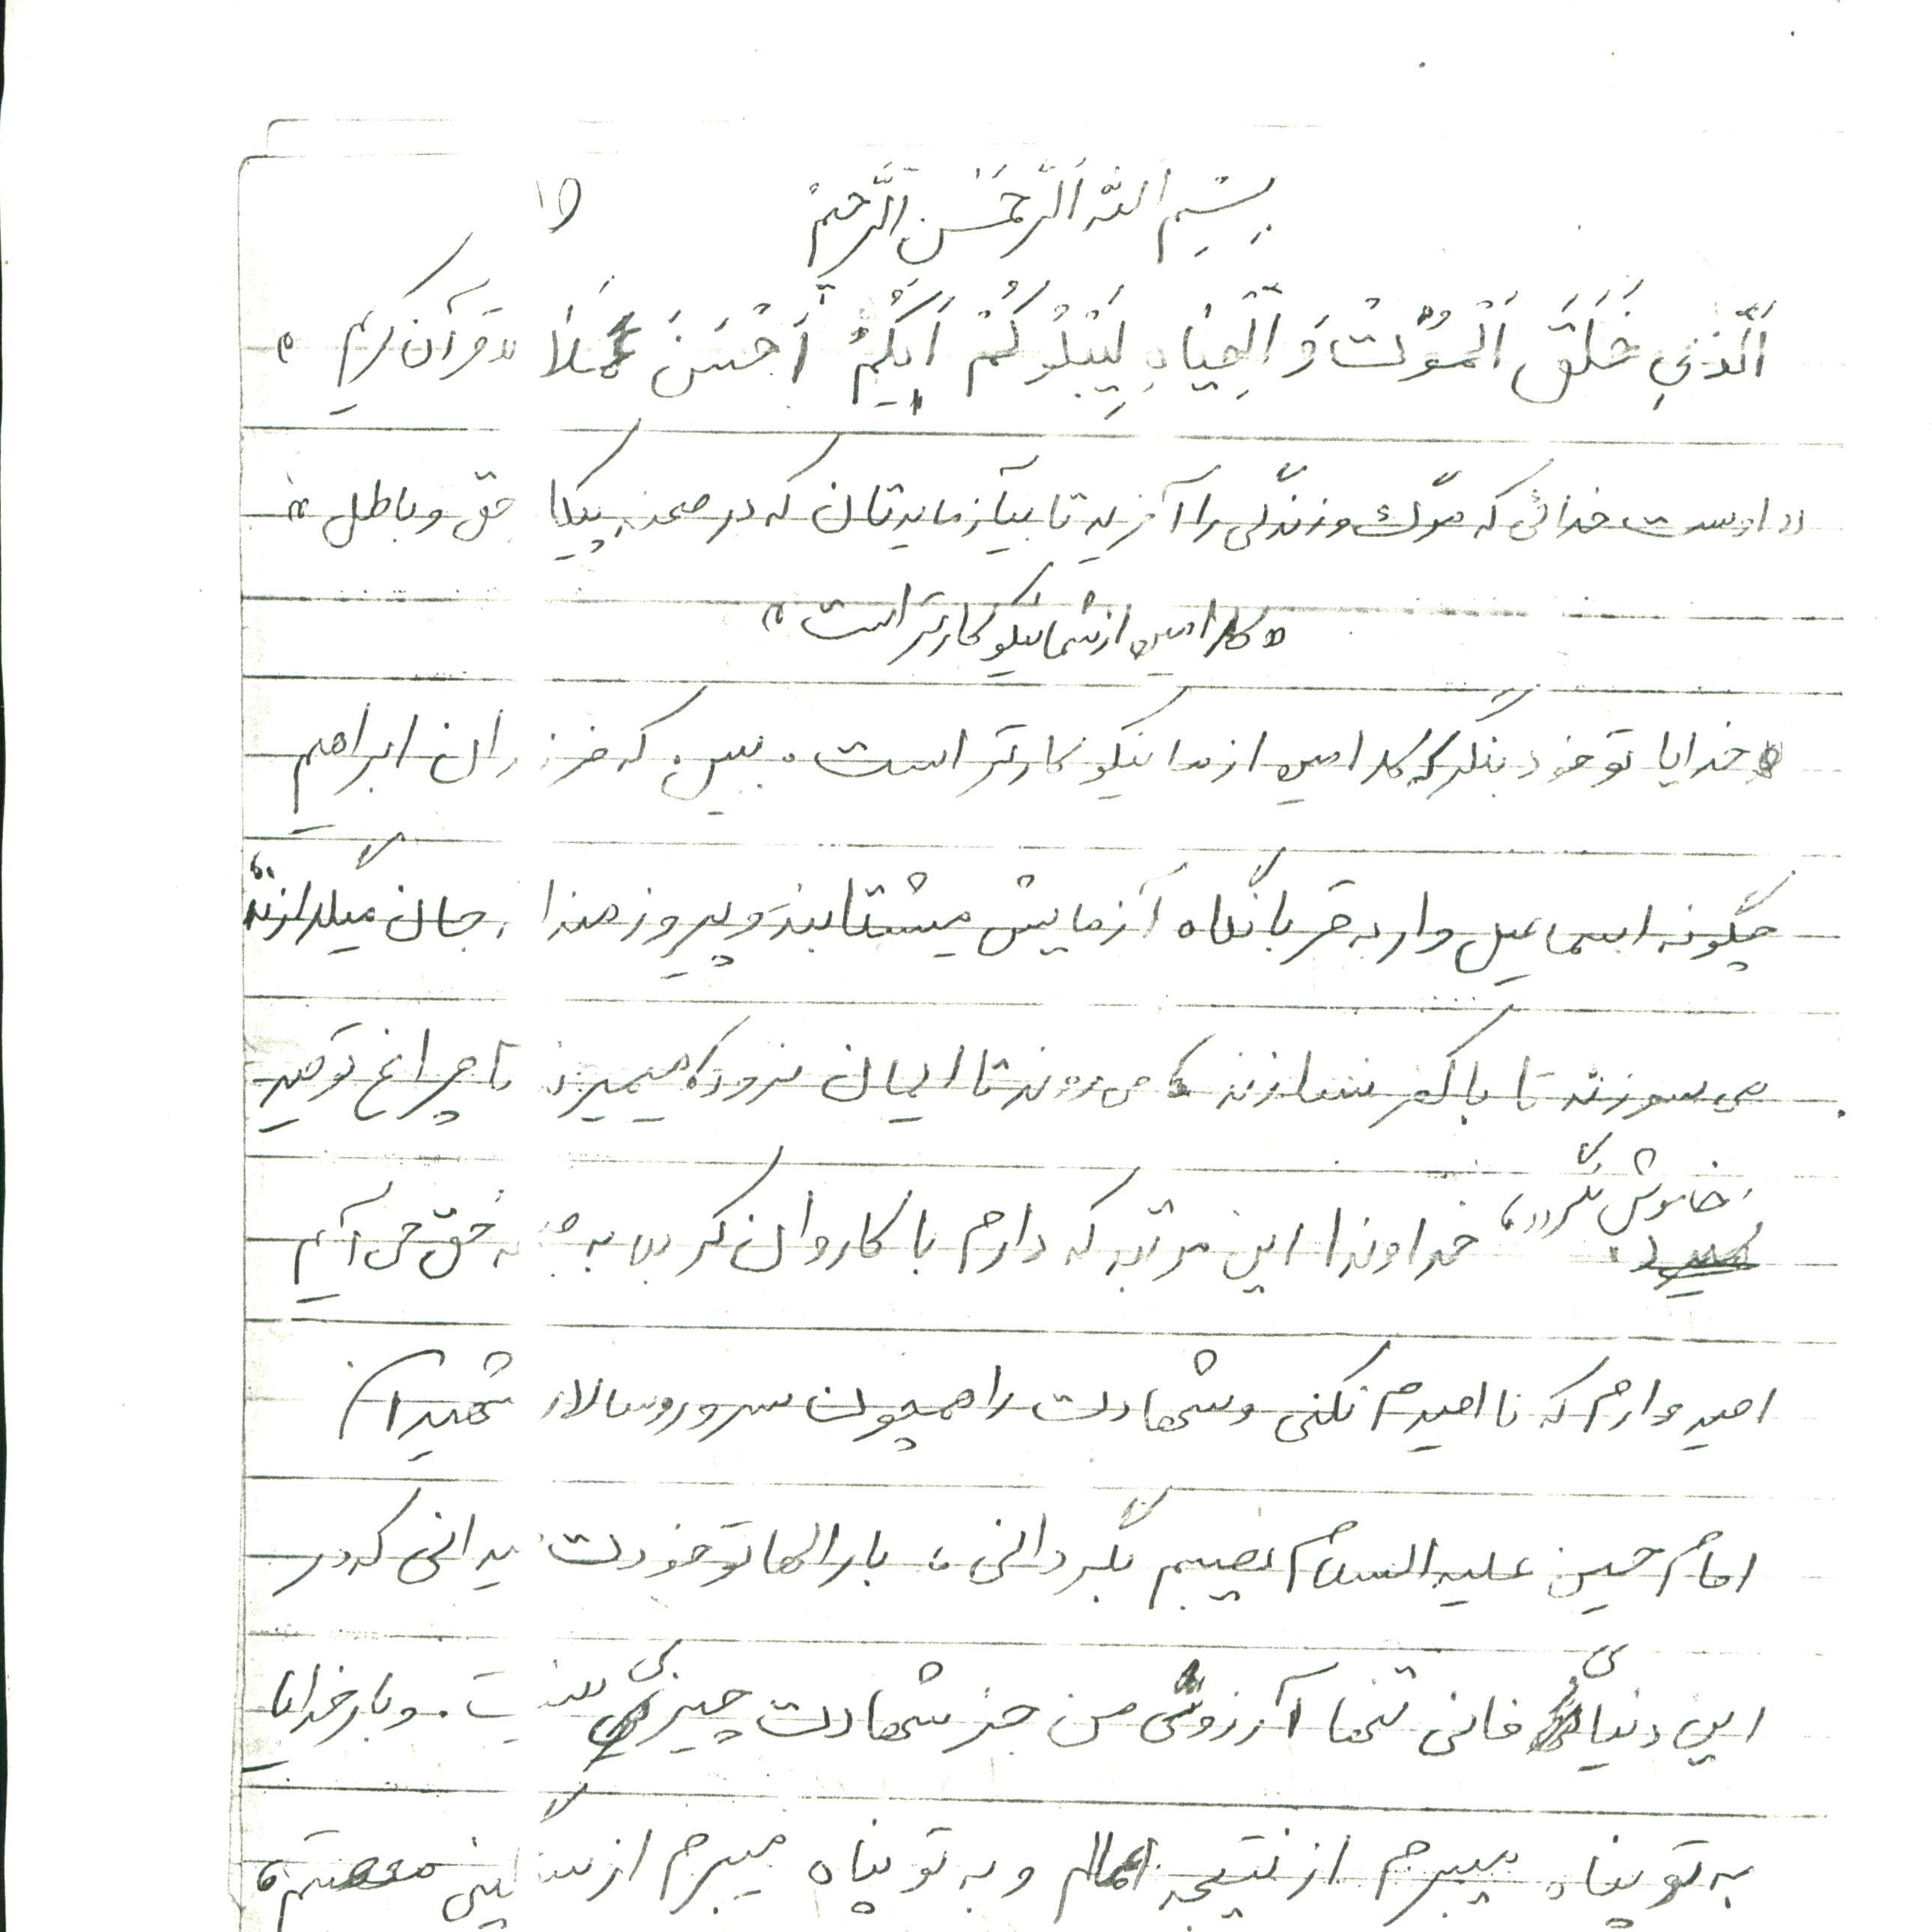 بِسْمِ اللهِ اَلرَّحْمنِ اَلرَّحیم
۱۵
اَلَّذی خَلَقَ اَلْمَوْت وَ اَلْحِیاه لِیَبْلُوَکُمْ اَیُّکُمْ أَحْسَنَ عَمَلاً «قرآن کریم»
«اوست خدائی که مرگ و زندگی را آفرید تا بیآزمایدتان که در صحنه پیکا حق و باطل»
«کدامین از شما نیکوکارتر است»
خدایا تو خود بنگر که کدامین از ما نیکوکارتر است. ببین که فرزندان ابراهیم
چگونه اسماعیل وار به قربانگاه آزمایش میشتابند و پیروزمندا جان میگدازند
می سوزند تا با کفر نسازند می روند تا ایمان نرود میمیرند تا چراغ توحید
خاموش نگردد، خداوندا این مرتبه که دارم با کاروان کربلا به حق می آیم
امیدوارم که ناامیدم نکنی و شهادت را همچون سرور و سالار شهیدان
امام حسین علیه السلام نصیبم بگردانی، بارالها تو خودت میدانی که در
این دنیای فانی تنها آرزوی من جز شهادت چیزی نیست. و بار خدایا
به تو پناه میبرم از نتیجه اعمالم و به تو پناه میبرم از